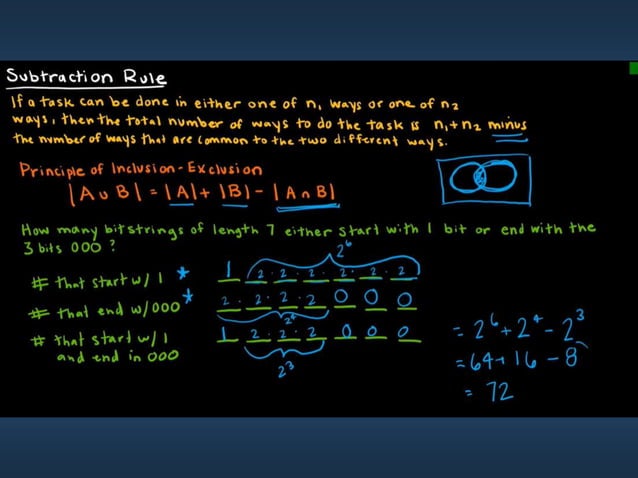 Subtraction Rule
If a task can be done in either one of n₁ ways or one of n₂
ways, then the total number of ways to do the task is n₁+n₂ minus
the number of ways that are common to the two different ways.
Principle of Inclusion-Exclusion
|A ∪ B| = |A| + |B| - |A ∩ B|
How many bitstrings of length 7 either start with 1 bit or end with the
3 bits 000?
2⁶
# that start w/ 1 * 1 2 · 2 · 2 · 2 · 2 · 2
# that end w/000 * 2 · 2 · 2 · 2 0 0 0
2⁴
# that start w/ 1 and end in 000 1 2 · 2 · 2 0 0 0
2³
= 2⁶ + 2⁴ - 2³
= 64 + 16 - 8
= 72